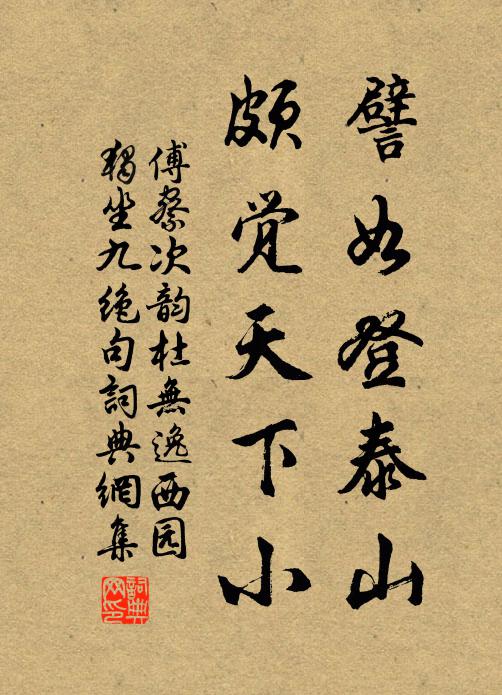 譬如登泰山
颇觉天下小
傅察次韵杜無逸西园
獨坐九絶句詞典網集
詞典
网印